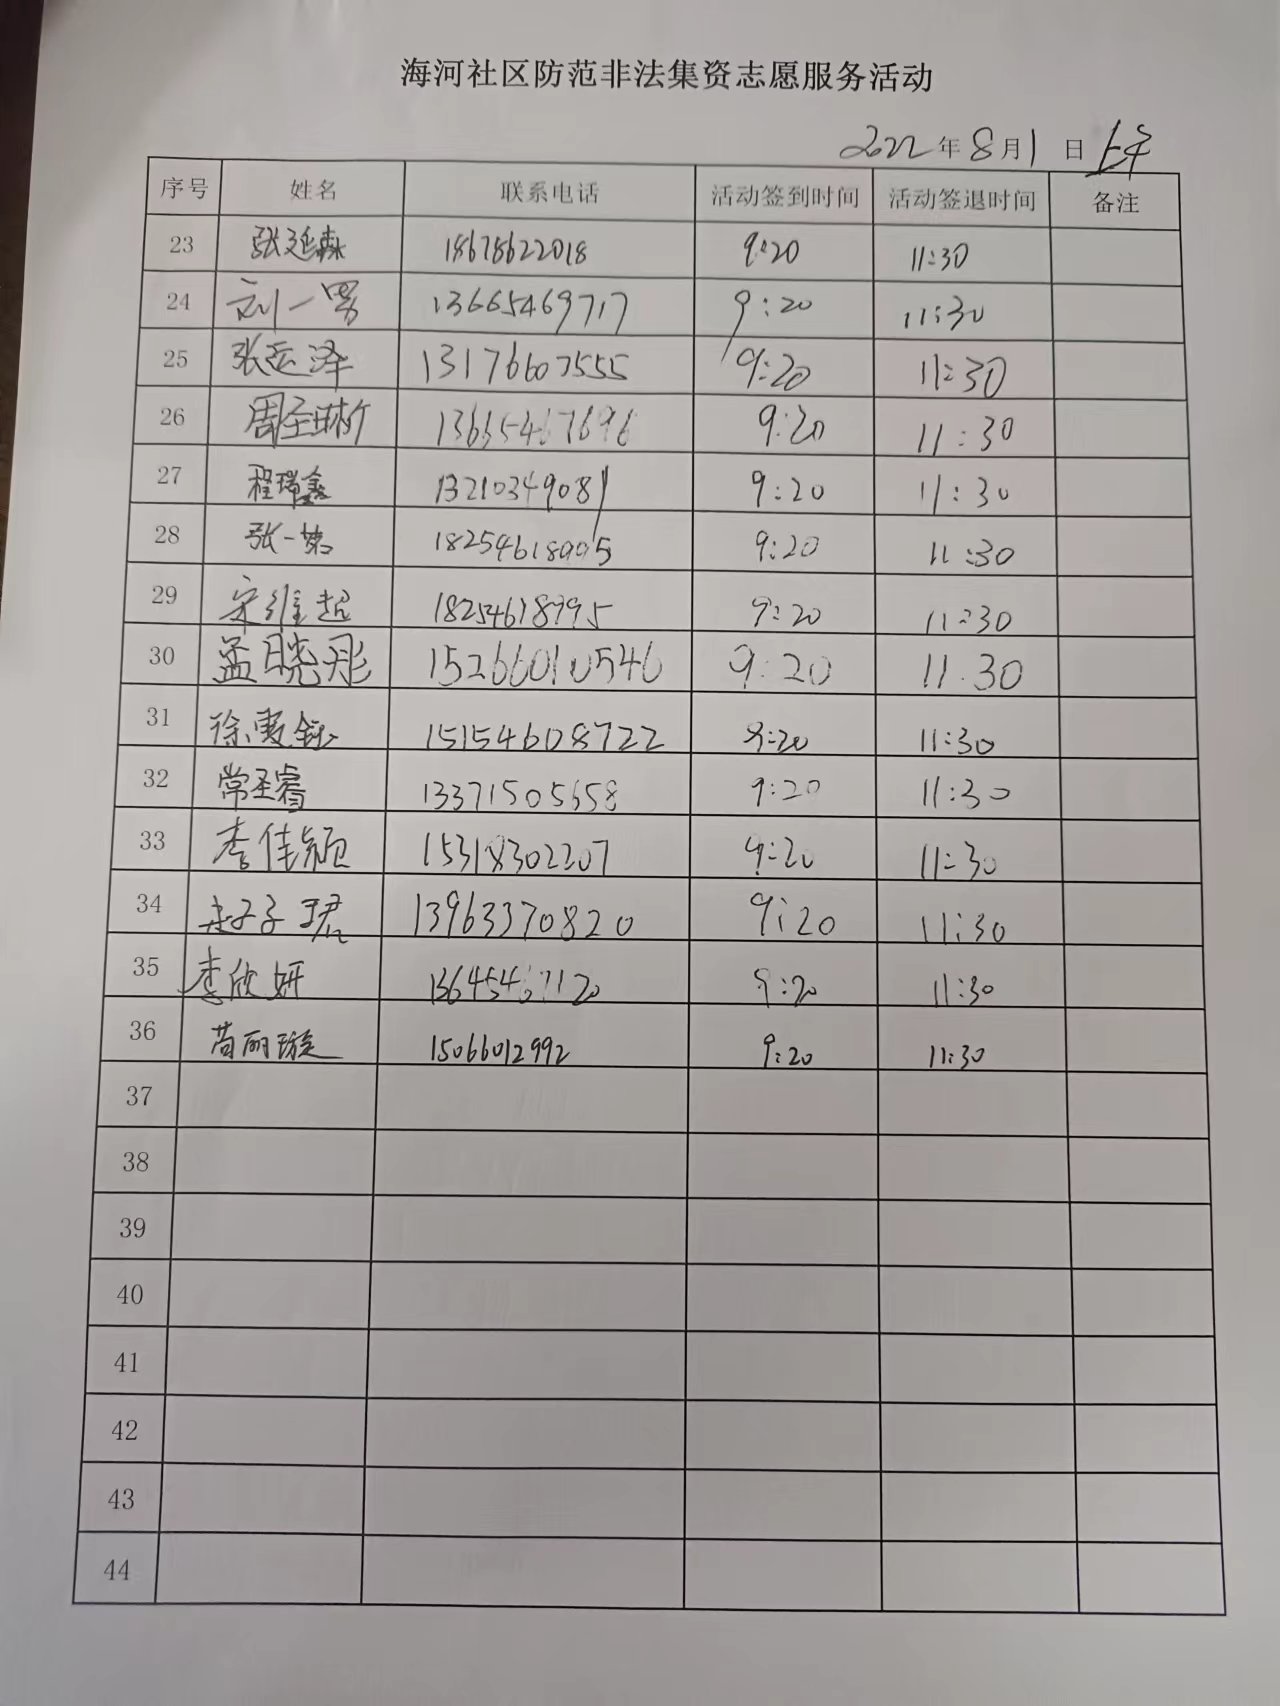 海河社区防范非法集资志愿服务活动
2022年8月1日上午
序号 姓名 联系电话 活动签到时间 活动签退时间 备注
23 张延森 18678622018 9:20 11:30
24 刘一男 13665469717 9:20 11:30
25 张云泽 13176607555 9:20 11:30
26 周圣琳 9:20 11:30
27 程瑞鑫 13210349081 9:20 11:30
28 张一 9:20 11:30
29 宋维超 18254618995 9:20 11:30
30 孟晓彤 15266010546 9:20 11:30
31 徐 15154608722 9:20 11:30
32 常圣睿 13371505658 9:20 11:30
33 李佳颖 15318302207 9:20 11:30
34 子珺 13963370820 9:20 11:30
35 李欣妍 9:20 11:30
36 苘丽璇 15066012992 9:20 11:30
37
38
39
40
41
42
43
44